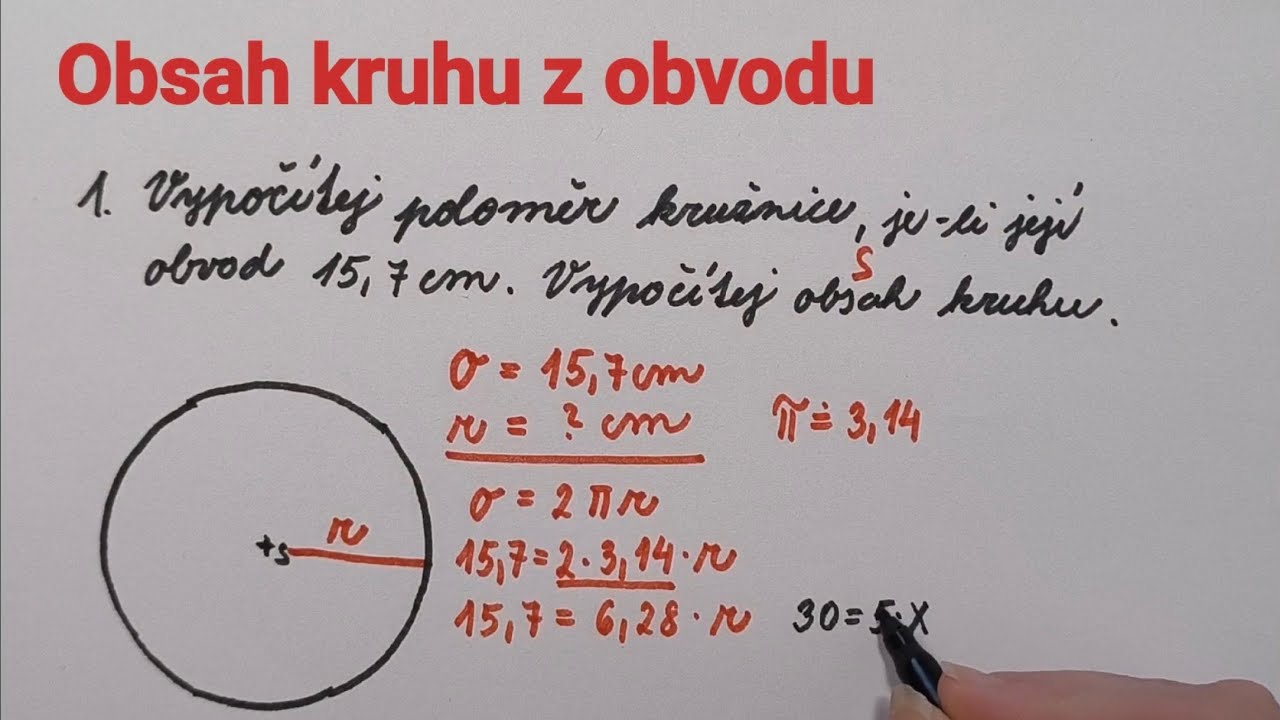 Obsah kruhu z obvodu
1. Vypočítej poloměr kružnice, je-li její
obvod 15,7 cm. Vypočítej obsah kruhu.
S
o = 15,7 cm
r = ? cm
π ≐ 3,14
o = 2 π r
15,7 = 2 · 3,14 · r
15,7 = 6,28 · r
30 = 5 · x
r
+S